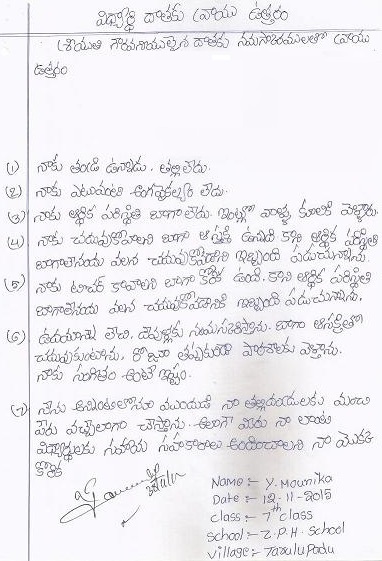 విద్యార్థి దాతకు వ్రాయు ఉత్తరం
శ్రీయుత గౌరవనీయులైన దాతకు నమస్కారములతో వ్రాయు
ఉత్తరం
(1) నాకు తండ్రి ఉన్నాడు, తల్లి లేదు.
(2) నాకు ఎటువంటి అంగవైకల్యం లేదు.
(3) నాకు ఆర్థిక పరిస్థితి బాగా లేదు. ఇంట్లో వాళ్ళు కూలికి వెళ్తారు.
(4) నాకు చదువుకోవాలని బాగా ఆసక్తి ఉన్నది కాని ఆర్థిక పరిస్థితి
బాగాలేనందు వలన చదువుకోవడానికి ఇబ్బంది పడుచున్నాను.
(5) నాకు టీచర్ కావాలని బాగా కోరిక ఉంది. కాని ఆర్థిక పరిస్థితి
బాగాలేనందు వలన చదువుకోవడానికి ఇబ్బంది పడుచున్నాను.
(6) ఉదయాన్నే లేచి, దేవుళ్లకు నమస్కరిస్తాను. బాగా ఆసక్తితో
చదువుకుంటాను, రోజూ తప్పకుండా పాఠశాలకు వెళ్తాను.
నాకు సంగీతం అంటే ఇష్టం.
(7) నేను అన్నింటిలోనూ ముందుండి నా తల్లిదండ్రులకు మంచి
పేరు వచ్చేలాగా చూస్తాను. అలాగే మీరు నా లాంటి
విద్యార్థులకు సహాయ సహకారాలు అందించాలని నా యొక్క
కోరిక
Name :- Y. Mounika
Date :- 12-11-2015
class :- 7th class
school :- Z.P.H. School
village :- Tarulupadu